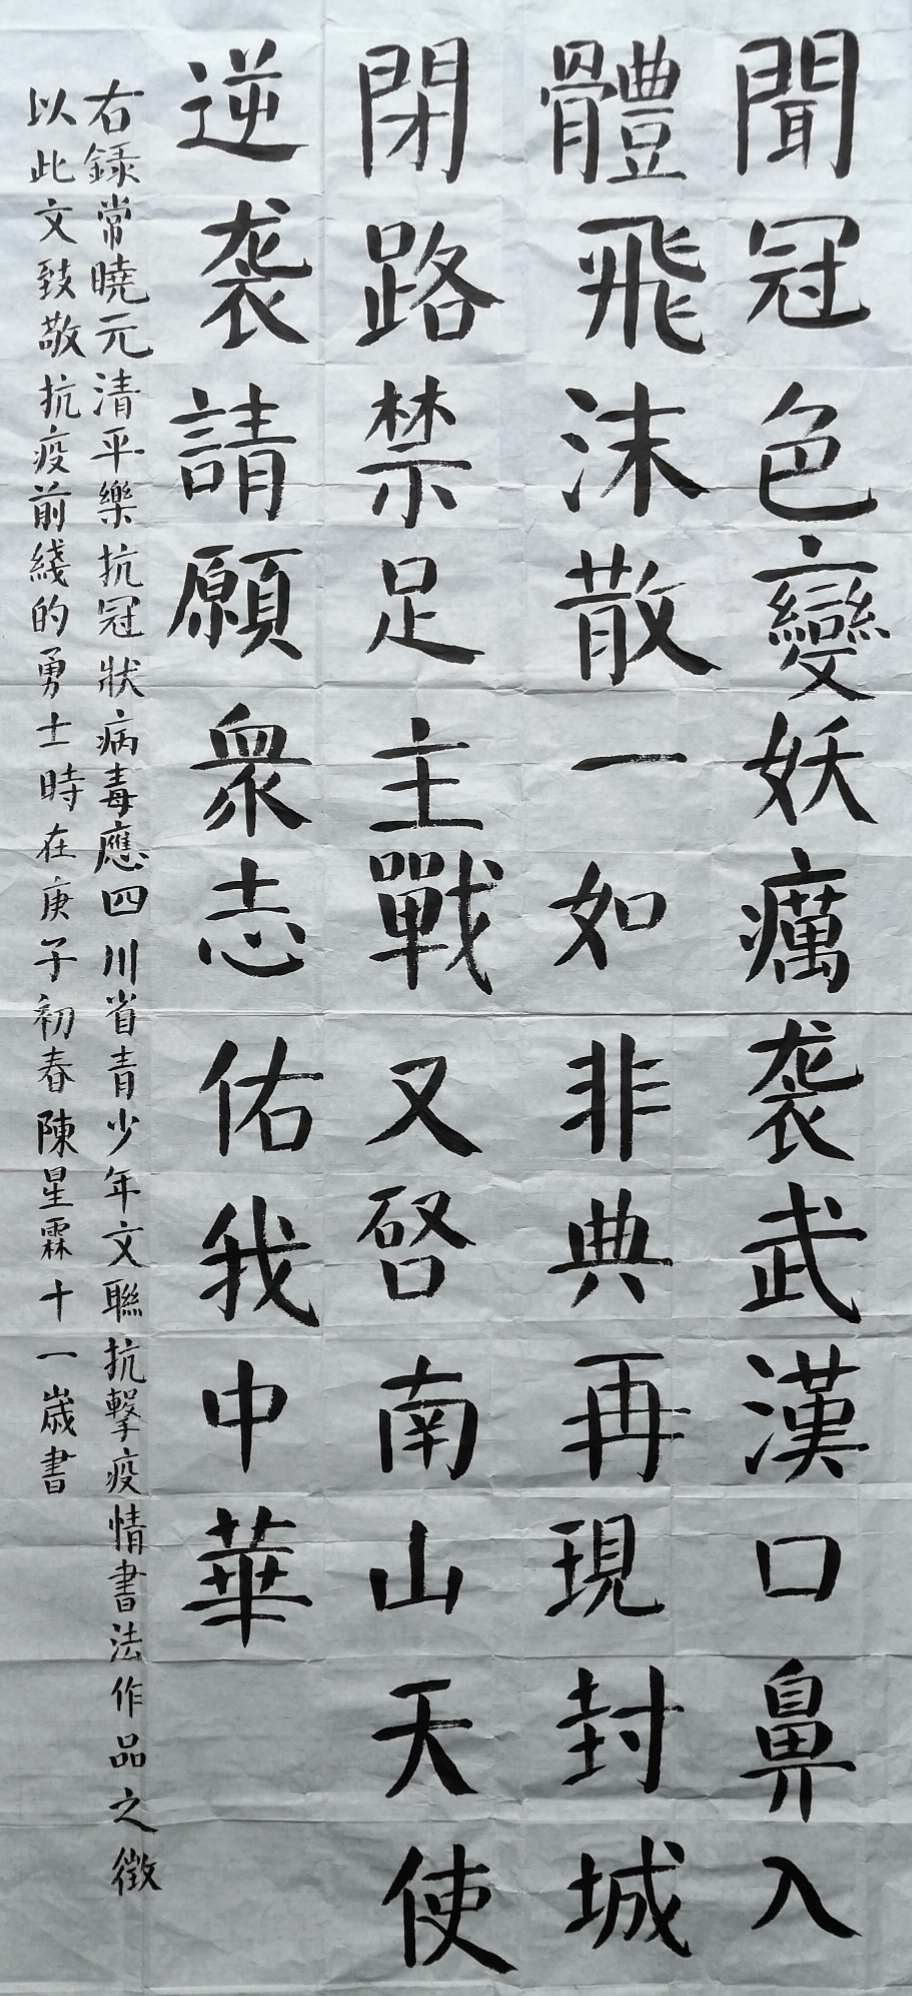 聞冠色變妖癘袭武漢口鼻入
體飛沫散一如非典再現封城
閉路禁足主戰又啓南山天使
逆袭請願衆志佑我中華
右録常曉元清平樂抗冠狀病毒應四川省青少年文聯抗擊疫情書法作品之徵
以此文致敬抗疫前綫的勇士時在庚子初春陳星霖十一歲書